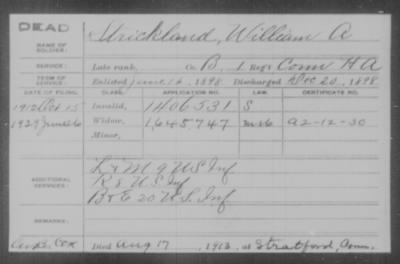 DEAD
NAME OF SOLDIER: Strickland, William A
SERVICE: Late rank, Co. B, 1 Reg't Conn H A
TERM OF SERVICE: Enlisted June 14, 1898 Discharged Dec 20, 1898
DATE OF FILING. CLASS. APPLICATION NO. LAW. CERTIFICATE NO.
1912 Oct 15 Invalid, 1406531 S
1929 June 26 Widow, 1,645,747 A2-12-30
Minor,
ADDITIONAL SERVICES: L & M 9 U S Inf
R & U S Inf
B & E 20 U.S. Inf
REMARKS:
Died Aug 17, 1913, at Stratford, Conn.